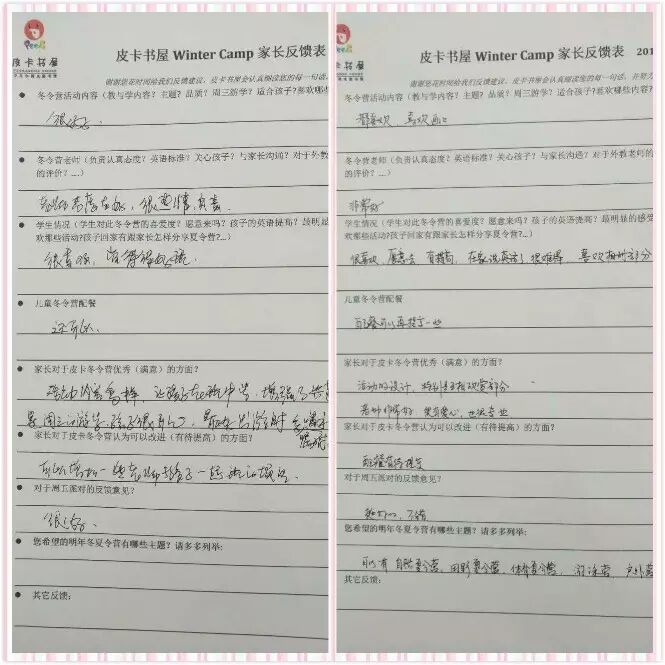 皮卡书屋
皮卡书屋 Winter Camp 家长反馈表
谢谢您花时间给我们反馈建议，皮卡书屋会认真阅读您的每一句话，
冬令营活动内容（教与学内容？主题？品质？周三游学？适合孩子？喜欢哪些
很好
冬令营老师（负责认真态度？英语标准？关心孩子？与家长沟通？对于外教
的评价？....）
很热情，负责
学生情况（学生对此冬令营的喜爱度？愿意来吗？孩子的英语提高？最明显
欢那些活动?孩子回家有跟家长怎样分享夏令营?...）
很喜欢，
儿童冬令营配餐
还可以
家长对于皮卡冬令营优秀（满意）的方面？
活动内容多样，让孩子在玩中学，增强了
周三游学，孩子很开心
家长对于皮卡冬令营认为可以改进（有待提高）的方面？
可以增加一些老师与孩子一起
对于周五派对的反馈意见？
很好
您希望的明年冬夏令营有哪些主题？请多多列举：
其它反馈：
皮卡书屋
皮卡书屋 Winter Camp 家长反馈表 201
谢谢您花时间给我们反馈建议，皮卡书屋会认真阅读您的每一句话，并努力
冬令营活动内容（教与学内容？主题？品质？周三游学？适合孩子?喜欢哪些内容?
都喜欢 喜欢画画
冬令营老师（负责认真态度？英语标准？关心孩子？与家长沟通？对于外教老师的
的评价？....）
非常好
学生情况（学生对此冬令营的喜爱度？愿意来吗？孩子的英语提高？最明显的感受
欢那些活动?孩子回家有跟家长怎样分享夏令营?...）
很喜欢、愿意去 有提高，在家说英语了 很难得 喜欢 部分
儿童冬令营配餐
配餐可以再提高一些
家长对于皮卡冬令营优秀（满意）的方面？
活动的设计，特别是 部分
老师非常好 很有爱心，也很专业
家长对于皮卡冬令营认为可以改进（有待提高）的方面？
配餐有待提高
对于周五派对的反馈意见？
挺好的，不错
您希望的明年冬夏令营有哪些主题？请多多列举：
可以有 自然夏令营，田野夏令营，体育夏令营， 游泳营 户外营
其它反馈：